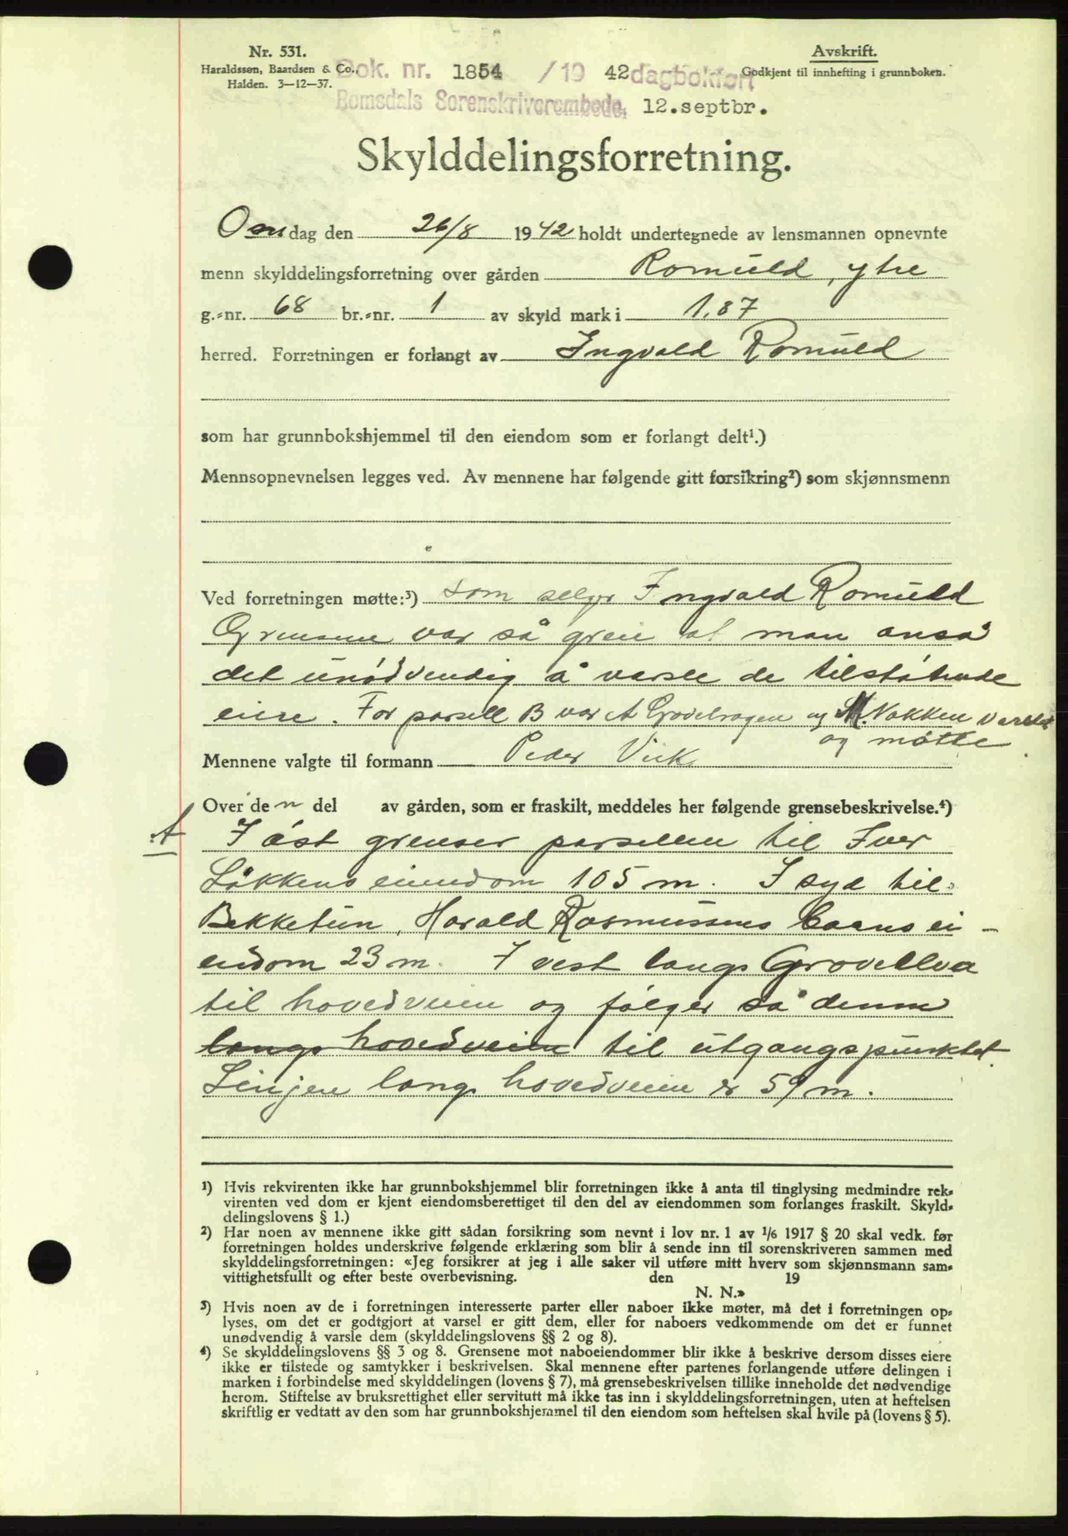 Nr. 531.
Haraldssen, Baardsen & Co.,
Halden. 3—12—37.
Avskrift.
Godkjent til innhefting i grunnboken.
Dok. nr. 1854 /19 42 dagbokført
Romsdals Sorenskriverembede, 12.septbr.
Skylddelingsforretning.
Onsdag den 26/8 1942 holdt undertegnede av lensmannen opnevnte
menn skylddelingsforretning over gården Romuld, ytre
g.-nr. 68 br.-nr. 1 av skyld mark i 1,87
herred. Forretningen er forlangt av Ingvald Romuld
som har grunnbokshjemmel til den eiendom som er forlangt delt¹.)
Mennsopnevnelsen legges ved. Av mennene har følgende gitt forsikring²) som skjønnsmenn
Ved forretningen møtte:³) som selger Ingvald Romuld
Grensene var så greie at man ansa
det unødvendig å varsle de tilstøtende
eiere. For parsell B var A Grovehagen og M. Nakken varslet
og møtte.
Mennene valgte til formann Peder Vik
Over den del av gården, som er fraskilt, meddeles her følgende grensebeskrivelse.⁴)
A
I øst grenser parsellen til Iver
Løkkens eiendom 105 m. I syd til
Bekketun, Harald Rasmussens barns ei-
endom 23 m. I vest langs Grovelva
til hovedveien og følger så denne
langs hovedveien til utgangspunktet.
Linjen langs hovedveien er 59 m.
¹) Hvis rekvirenten ikke har grunnbokshjemmel blir forretningen ikke å anta til tinglysing medmindre rek-
virenten ved dom er kjent eiendomsberettiget til den del av eiendommen som forlanges fraskilt. Skyld-
delingslovens § 1.)
²) Har noen av mennene ikke gitt sådan forsikring som nevnt i lov nr. 1 av 1/6 1917 § 20 skal vedk. før
forretningen holdes underskrive følgende erklæring som blir å sende inn til sorenskriveren sammen med
skylddelingsforretningen: «Jeg forsikrer at jeg i alle saker vil utføre mitt hverv som skjønnsmann sam-
vittighetsfullt og efter beste overbevisning. den 19
N. N.»
³) Hvis noen av de i forretningen interesserte parter eller naboer ikke møter, må det i forretningen op-
lyses, om det er godtgjort at varsel er gitt dem, eller for naboers vedkommende om det er funnet
unødvendig å varsle dem (skylddelingslovens §§ 2 og 8).
⁴) Se skylddelingslovens §§ 3 og 8. Grensene mot naboeiendommer blir ikke å beskrive dersom disses eiere
ikke er tilstede og samtykker i beskrivelsen. Skal mennene efter partenes forlangende utføre delingen i
marken i forbindelse med skylddelingen (lovens § 7), må grensebeskrivelsen tillike inneholde det nødvendige
herom. Stiftelse av bruksrettighet eller servitutt må ikke tas inn i skylddelingsforretningen, uten at heftelsen
skriftlig er vedtatt av den som har grunnbokshjemmel til den eiendom som heftelsen skal hvile på (lovens § 5).